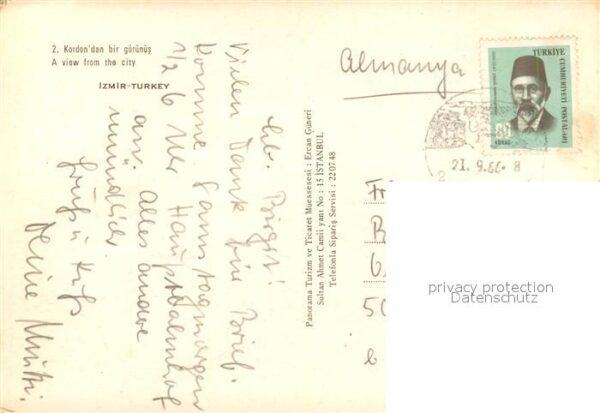 2. Kordon'dan bir görünüş
A view from the city
İZMİR-TURKEY
Lb. Birgit!
Vielen Dank für Brief.
Komme Samstagmorgen
1/2 6 Uhr Hauptbahnhof
an! Alles andere
mündlich
Gruß u Kuß
Deine Mutti.
Panorama Turizm ve Ticaret Muessesesi : Ercan Güneri
Sultan Ahmet Camii yanı No : 15 İSTANBUL
Telefonla Sipariş Servisi : 22 07 48
Almanya
TÜRKİYE
CUMHURİYETİ POSTALARI
KURUŞ
21. 9.66- 8
2
B
50
privacy protection
Datenschutz